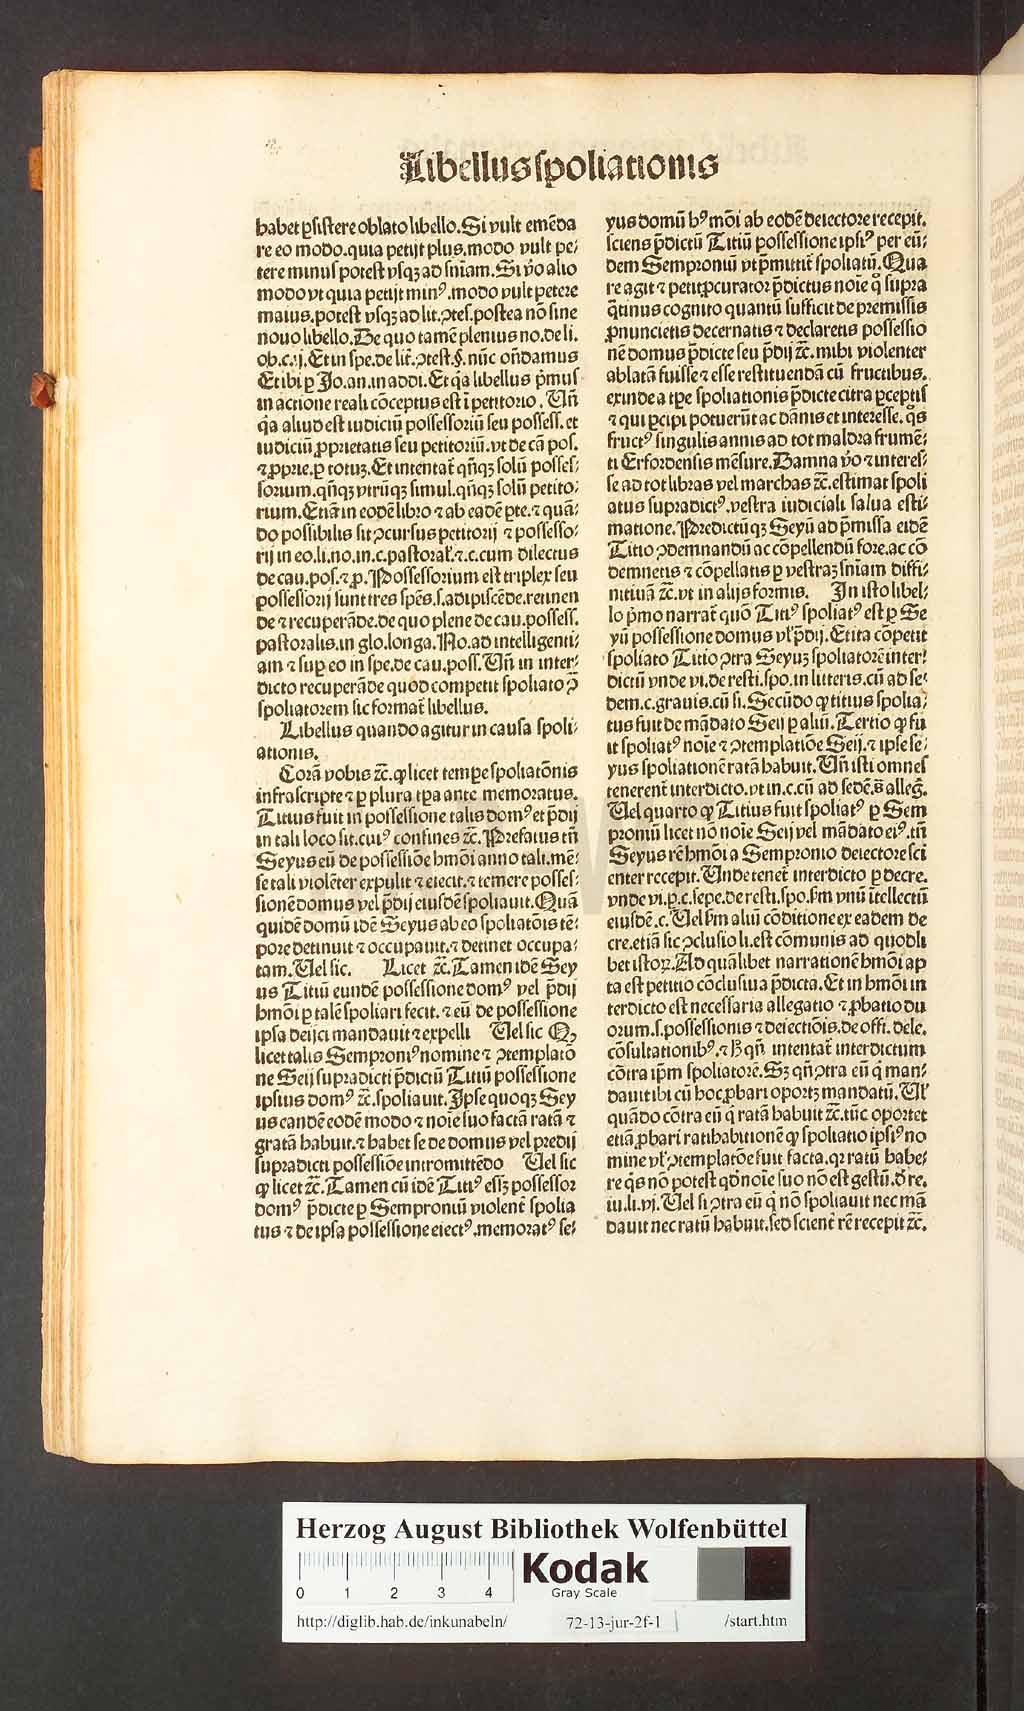 Libellus spoliationis
habet ꝑsistere oblato libello. Si vult emēda
re eo modo. quia petijt plus. modo vult pe⸗
tere minus potest vsqꝫ ad sniam. Si v̄o alio
modo vt quia petijt minꝰ. modo vult petere
maius. potest vsqꝫ ad lit. ꝯtes. postea nō sine
nouo libello. De quo tamē plenius no. de li.
ob. c. ij. Et in spe. de lit̄. ꝯtest. §. nūc on̄damus
Et ibi ꝑ Jo. an. in addi. Et q̄a libellus p̄mus
in actione reali cōceptus est ī petitorio. Un̄
q̄a aliud est iudiciū possessoriū seu possess. et
iudiciū ꝓprietatis seu petitoriū. vt de cā pos.
⁊ ꝓprie. ꝑ totuꝫ. Et intentat̄ qn̄qꝫ solū posses⸗
sorium. qn̄qꝫ vtrūqꝫ simul. qn̄qꝫ solū petito⸗
rium. Etiā in eodē libro ⁊ ab eadē ꝑte. ⁊ quā⸗
do possibilis sit ꝯcursus petitorij ⁊ possesso⸗
rij in eo. li. no. in. c. pastoral̄. ⁊. c. cum dilectus
de cau. pos. ⁊ ꝓ. Possessorium est triplex seu
possessorij sunt tres sp̄es. s. adipiscēde. retinen
de ⁊ recuperāde. de quo plene de cau. possess.
pastoralis. in glo. longa. No. ad intelligenti⸗
am ⁊ suꝑ eo in spe. de cau. poss. Un̄ in inter⸗
dicto recuperāde quod competit spoliato ꝯ̄
spoliatorem sic format̄ libellus.
Libellus quando agitur in causa spoli⸗
ationis.
Corā vobis ⁊c̄. ꝙ licet tempe spoliatōnis
infrascripte ⁊ ꝑ plura tꝑa ante memoratus.
Titius fuit in possessione talis domꝰ et p̄dij
in tali loco sit. cuiꝰ confines ⁊c̄. Prefatus tn̄
Seyus eū de possessiōe hmōi anno tali. mē⸗
se tali violēter expulit ⁊ eiecit. ⁊ temere posses⸗
sionē domus vel p̄dij eiusdē spoliauit. Quā
quidē domū idē Seyus ab eo spoliatōis tē⸗
pore detinuit ⁊ occupauit. ⁊ detinet occupa⸗
tam. Uel sic. Licet ⁊c̄. Tamen idē Sey
us Titiū eundē possessione domꝰ vel p̄dij
hmōi ꝑ talē spoliari fecit. ⁊ eū de possessione
ipsa deijci mandauit ⁊ expelli Uel sic Ꝙ
licet talis Semproniꝰ nomine ⁊ ꝯtemplatō
ne Seij supradicti p̄dictū Titiū possessione
ipsius domꝰ ⁊c̄. spoliauit. Ipse quoqꝫ Sey
us eandē eodē modo ⁊ noīe suo factā ratā ⁊
gratā habuit. ⁊ habet se de domus vel predij
supradicti possessiōe intromittēdo Uel sic
ꝙ licet ⁊c̄. Tamen cū idē Titiꝰ essꝫ possessor
domꝰ p̄dicte ꝑ Semproniū violent̄ spolia
tus ⁊ de ipsa possessione eiectꝰ. memoratꝰ se⸗
yus domū hꝰmōi ab eodē deiectore recepit.
sciens p̄dictū Titiū possessione ipsiꝰ per eū⸗
dem Semproniū vt p̄mittit̄ spoliatū. Qua
re agit ⁊ petit ꝓcurator p̄dictus noīe q̊ supra
q̄tinus cognito quantū sufficit de premissis
ꝓnuncietis decernatis ⁊ declaretis possessio
nē domus p̄dicte seu p̄dij ⁊c̄. mihi violenter
ablatā fuisse ⁊ esse restituendā cū fructibus.
exinde a tꝑe spoliationis p̄dicte citra ꝑceptis
⁊ qui ꝑcipi potuerūt ac dānis et interesse. q̊s
fructꝰ singulis annis ad tot maldra frumē⸗
ti Erfordensis mēsure. Damna v̄o ⁊ interes⸗
se ad tot libras vel marchas ⁊c̄. estimat spoli
atus supradictꝰ. vestra iudiciali salua esti⸗
matione. Predictūqꝫ Seyū ad p̄missa eidē
Titio ꝯdemnandū ac cōpellendū fore. ac cō
demnetis ⁊ cōpellatis ꝑ vestraꝫ sniam diffi⸗
nitiuā ⁊c̄. vt in alijs formis. In isto libel⸗
lo p̄mo narrat̄ quō Titꝰ spoliatꝰ est ꝑ Se
yū possessione domus vl̄ p̄dij. Et ita cōpetit
spoliato Titio ꝯtra Seyuꝫ spoliatorē inter⸗
dictū vnde vi. de resti. spo. in litteris. cū ad se⸗
dem. c. grauis. cū si. Secūdo ꝙ titius spolia⸗
tus fuit de mādato Seij ꝑ aliū. Tertio ꝙ fu
it spoliatꝰ noīe ⁊ ꝯtemplatiōe Seij. ⁊ ipse se⸗
yus spoliationē ratā habuit. Un̄ isti omnes
tenerent̄ interdicto. vt in. c. cū ad sedē. s̄ alleḡ.
Uel quarto ꝙ Titius fuit spoliatꝰ ꝑ Sem
proniū licet nō noīe Seij vel mādato eiꝰ. tn̄
Seyus rē hmōi a Sempronio deiectore sci
enter recepit. Unde tenet̄ interdicto ꝑ decre.
vnde vi. ꝑ. c. sepe. de resti. spo. ẜm vnū ītellectū
eiusdē. c. Uel ẜm aliū cōditione ex eadem de
cre. etiā sic ꝯclusio li. est cōmunis ad quodli
bet istoꝝ. Ad quālibet narrationē hmōi ap
ta est petitio cōclusiua p̄dicta. Et in hmōi in
terdicto est necessaria allegatio ⁊ ꝓbatio du
orum. s. possessionis ⁊ deiectiōis. de offi. dele.
cōsultationibꝰ. ⁊ h̄ qn̄ intentat̄ interdictum
cōtra ip̄m spoliatorē. Sꝫ qn̄ ꝯtra eū q̄ man⸗
dauit tibi cū hoc ꝓbari oportꝫ mandatū. Ul̄
quādo cōtra eū q̄ ratā habuit ⁊c̄. tūc oportet
etiā ꝓbari ratihabitionē ꝙ spoliatio ipsiꝰ no
mine vl̄ ꝯtemplatōe fuit facta. qꝛ ratū habe⸗
re q̄s nō potest qd̄ noīe suo nō est gestū. d̄ re.
iu. li. vj. Uel si ꝯtra eū q̄ nō spoliauit nec mā
dauit nec ratū habuit. sed scient̄ rē recepit ⁊c̄.
Herzog August Bibliothek Wolfenbüttel
0 1 2 3 4
Kodak
Gray Scale
http://diglib.hab.de/inkunabeln/ 72-13-jur-2f-1 /start.htm